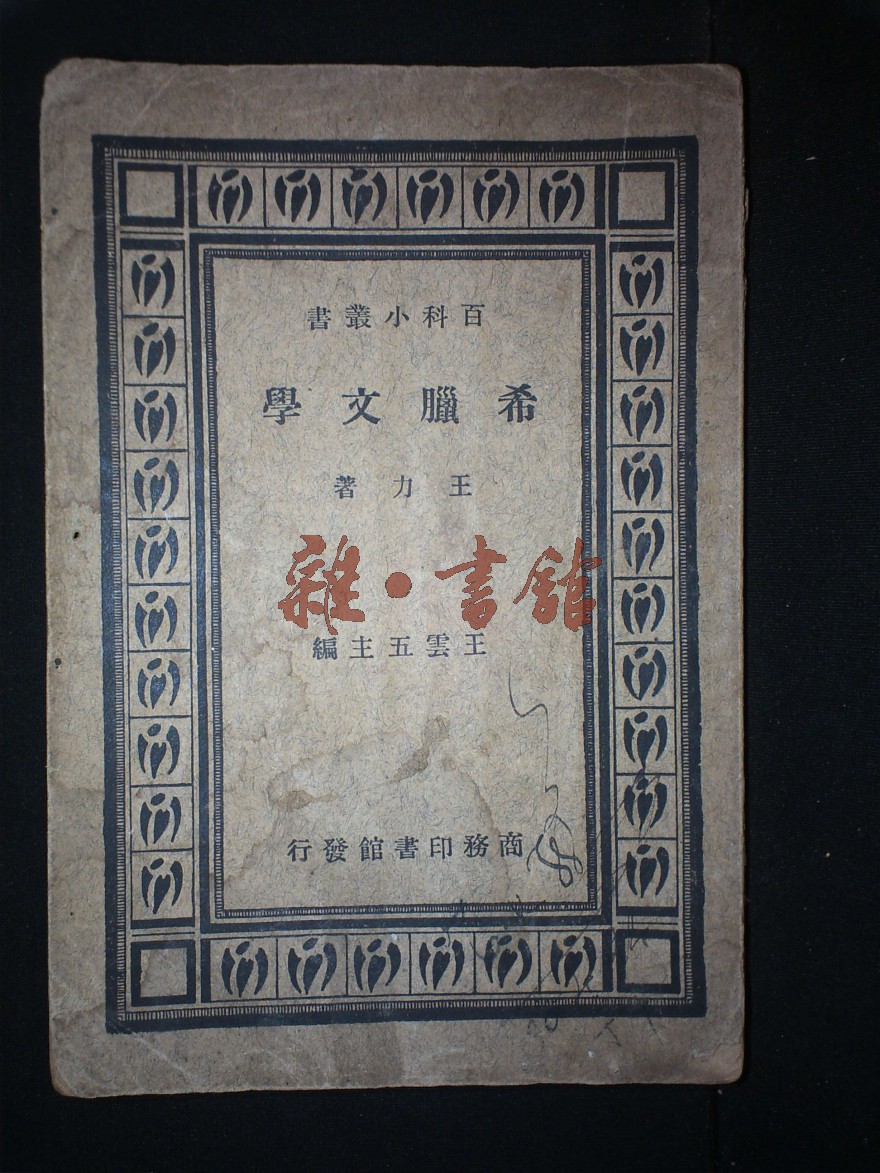 百科小叢書
希臘文學
王力著
雜·書館
王雲五主編
商務印書館發行